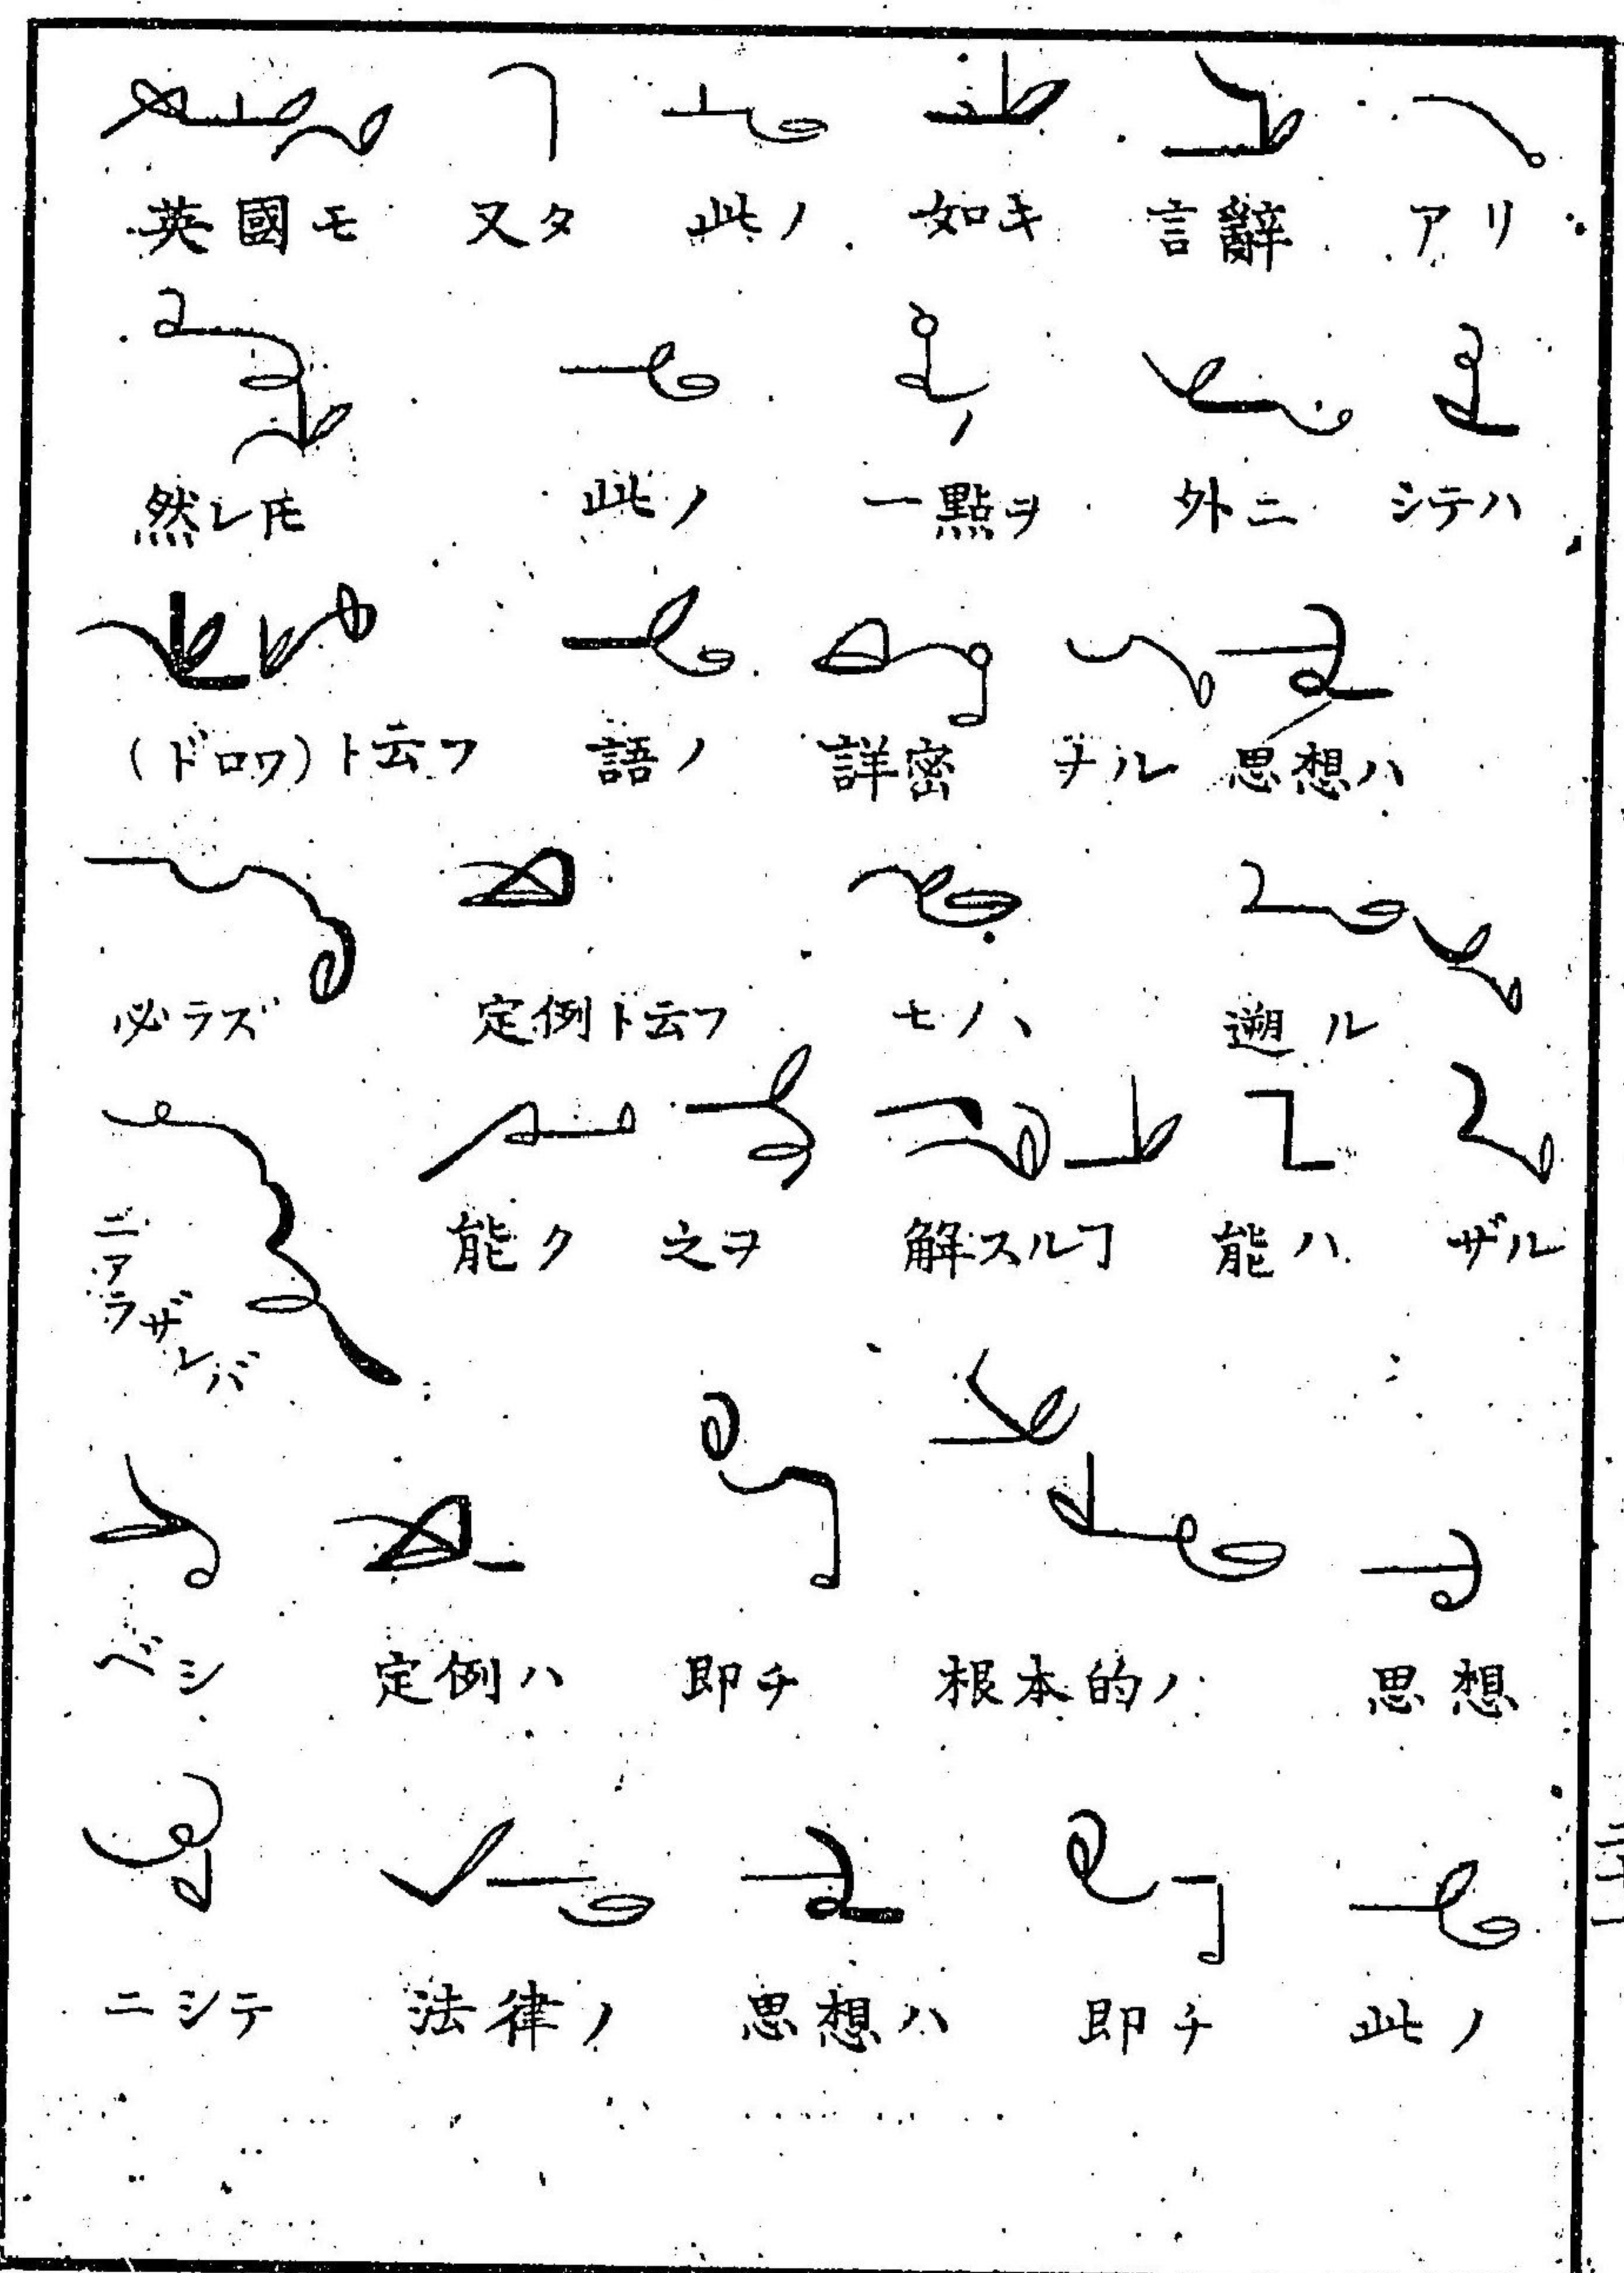 英國モ 又タ 此ノ 如キ 言辭 アリ
然レ𪜈 此ノ 一點ヲ 外ニ シテハ
(ドロワ)ト云フ 語ノ 詳密 ナル 思想ハ
必ラズ 定例ト云フ モノハ、 遡ル
ニアラザレバ 能ク 之ヲ 解スルヿ 能ハ ザル
ベシ 定例ハ 即チ 根本的ノ 思想
ニシテ 法律ノ 思想ハ 即チ 此ノ